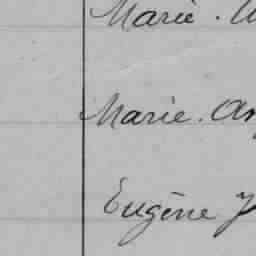 Marie.
Marie.
Eugène